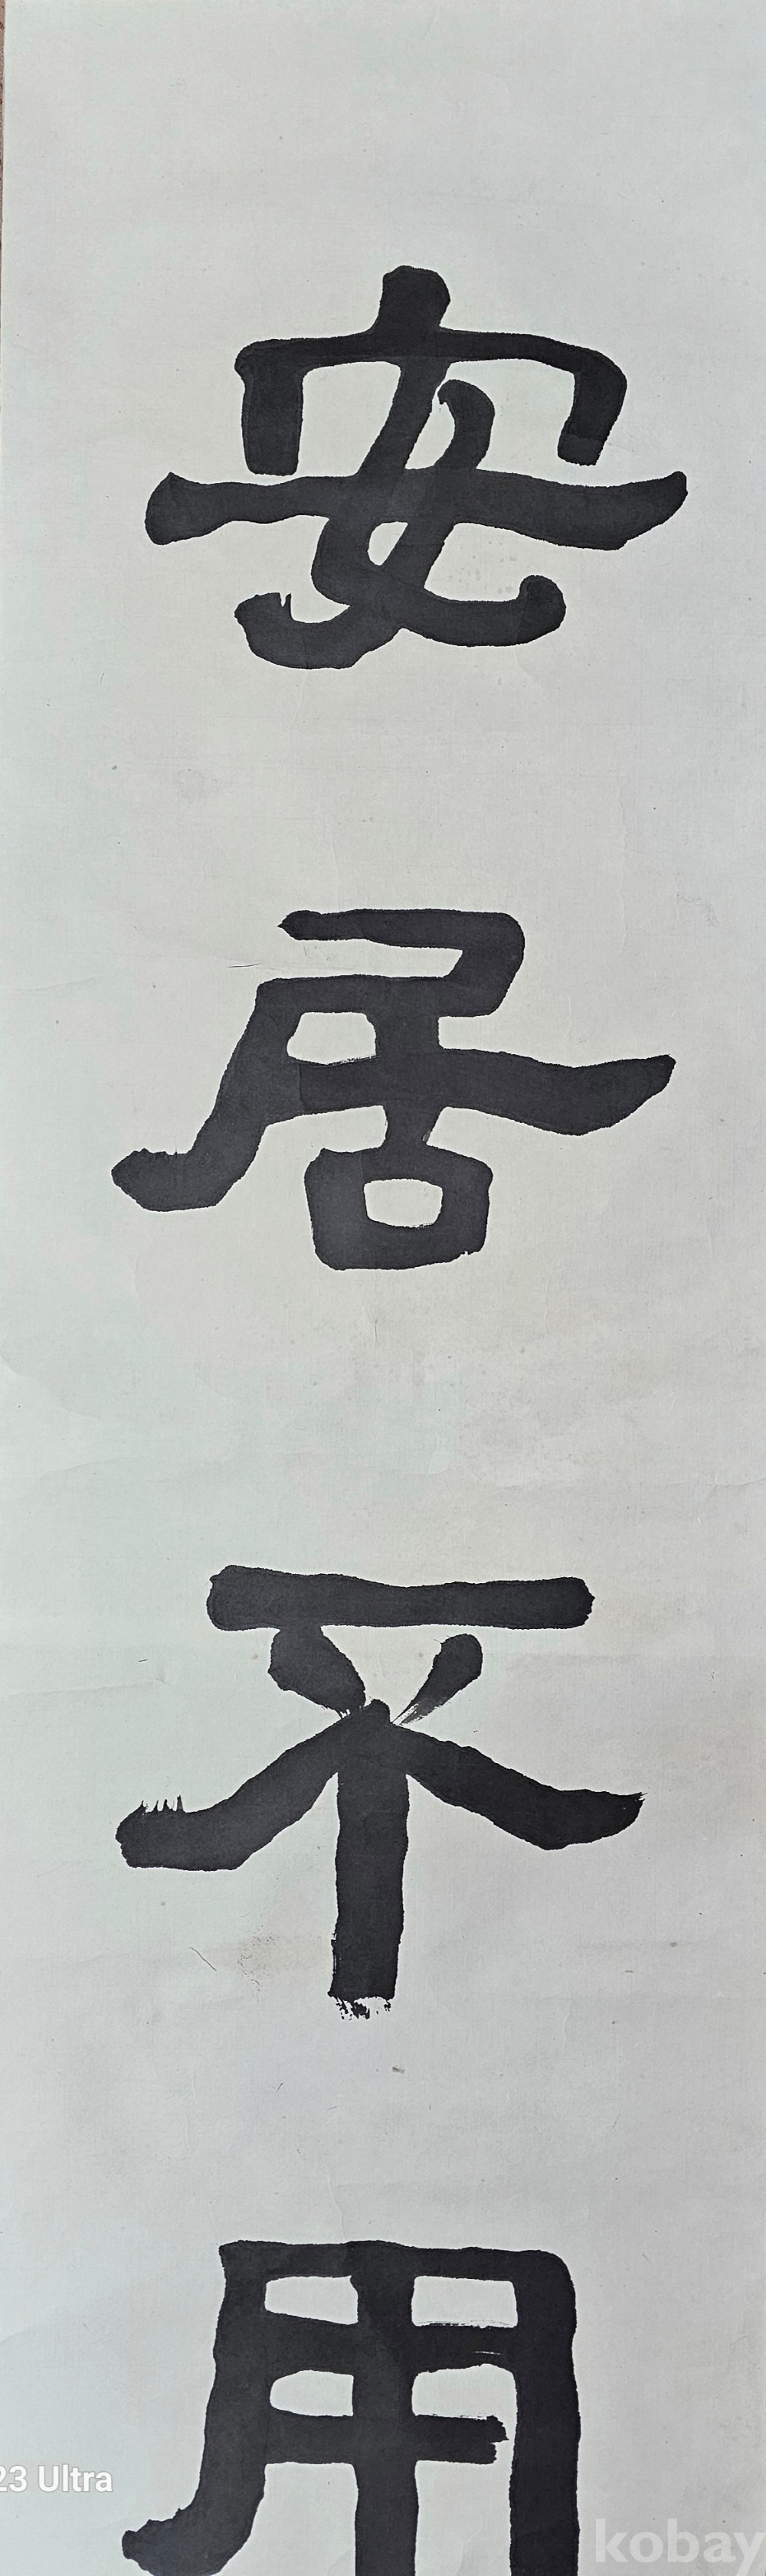 安居不用
23 Ultra
kobay